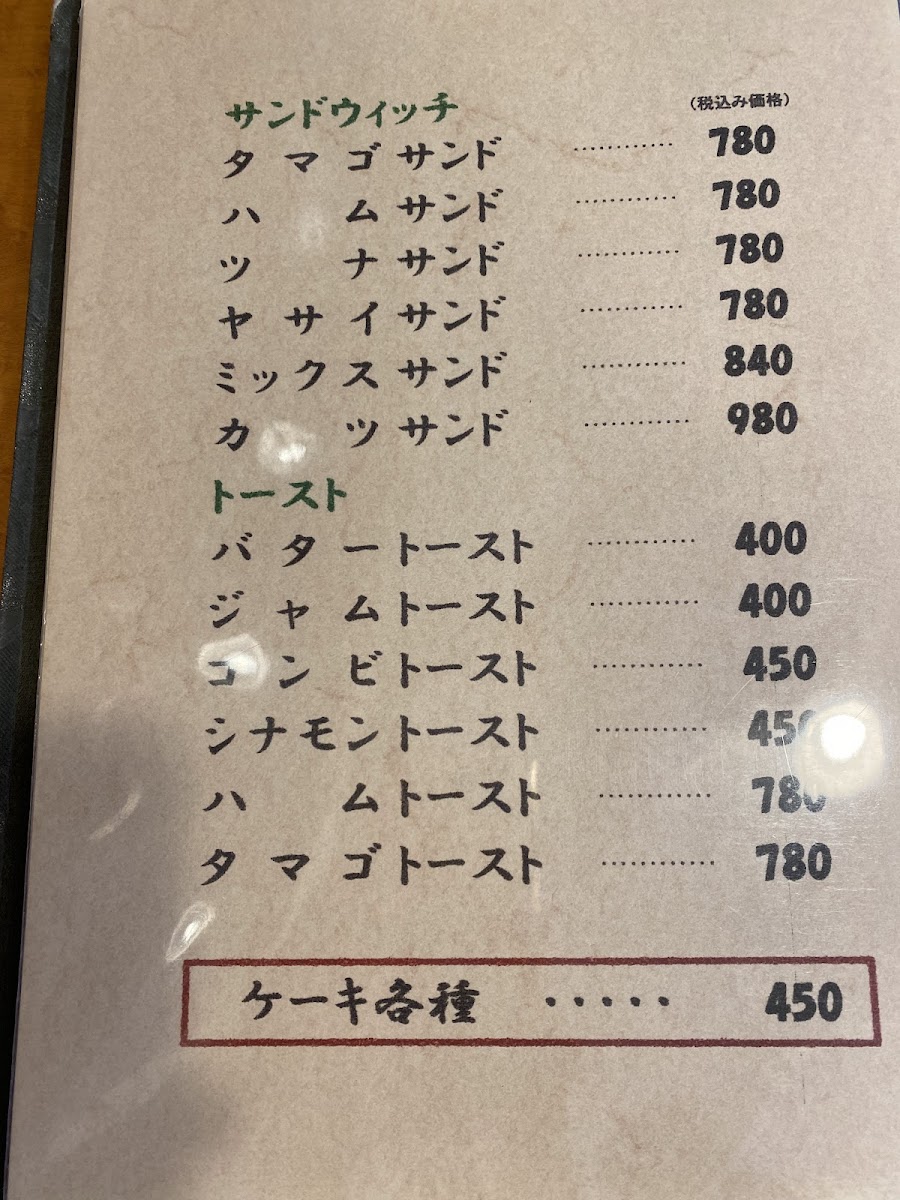 サンドウィッチ (税込み価格)
タマゴサンド ………… 780
ハムサンド ………… 780
ツナサンド ………… 780
ヤサイサンド ………… 780
ミックスサンド ………… 840
カツサンド ………… 980
トースト
バタートースト ………… 400
ジャムトースト ………… 400
コンビトースト ………… 450
シナモントースト ………… 450
ハムトースト ………… 780
タマゴトースト ………… 780
ケーキ各種 ・・・・・ 450